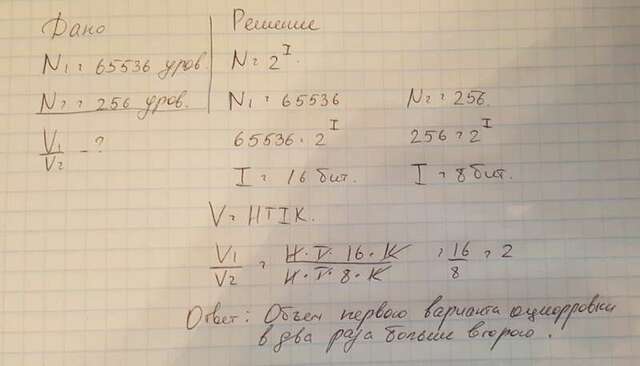 Дано
N₁ = 65536 уров.
N₂ = 256 уров.
V₁/V₂ - ?
Решение
N = 2^I
N₁ = 65536 N₂ = 256.
65536 = 2^I 256 = 2^I
I = 16 бит. I = 8 бит.
V = HTIK.
V₁/V₂ = H·T·16·K/H·T·8·K = 16/8 = 2
Ответ: Объем первого варианта оцифровки
в два раза больше второго.